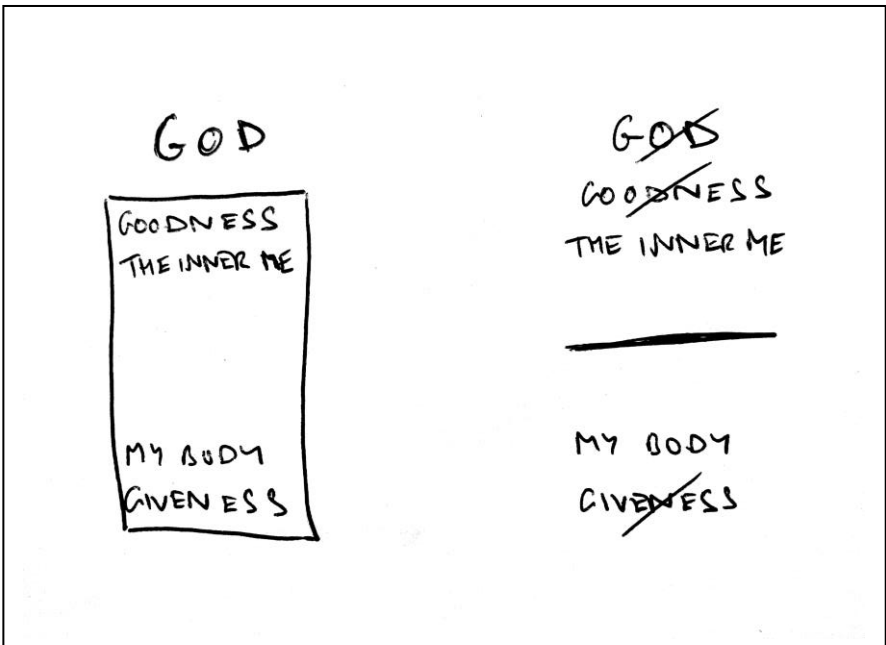 GOD
GOODNESS
THE INNER ME
MY BODY
GIVENESS
GOD
GOODNESS
THE INNER ME
MY BODY
GIVENESS